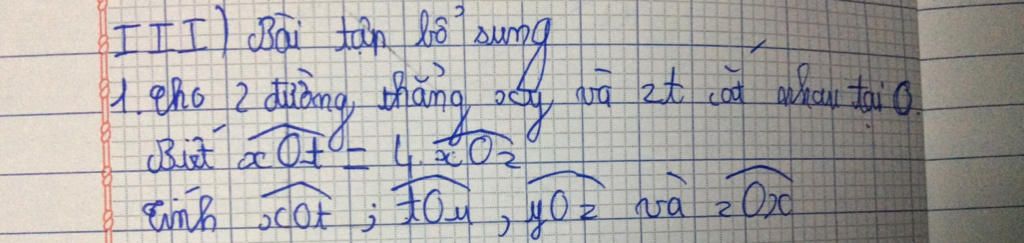 III) Bài tập bổ sung
1. Cho 2 đường thẳng xy và zt cắt nhau tại O.
Biết xOt = 4. xOz
Tính xOt ; tOy , yOz và zOx